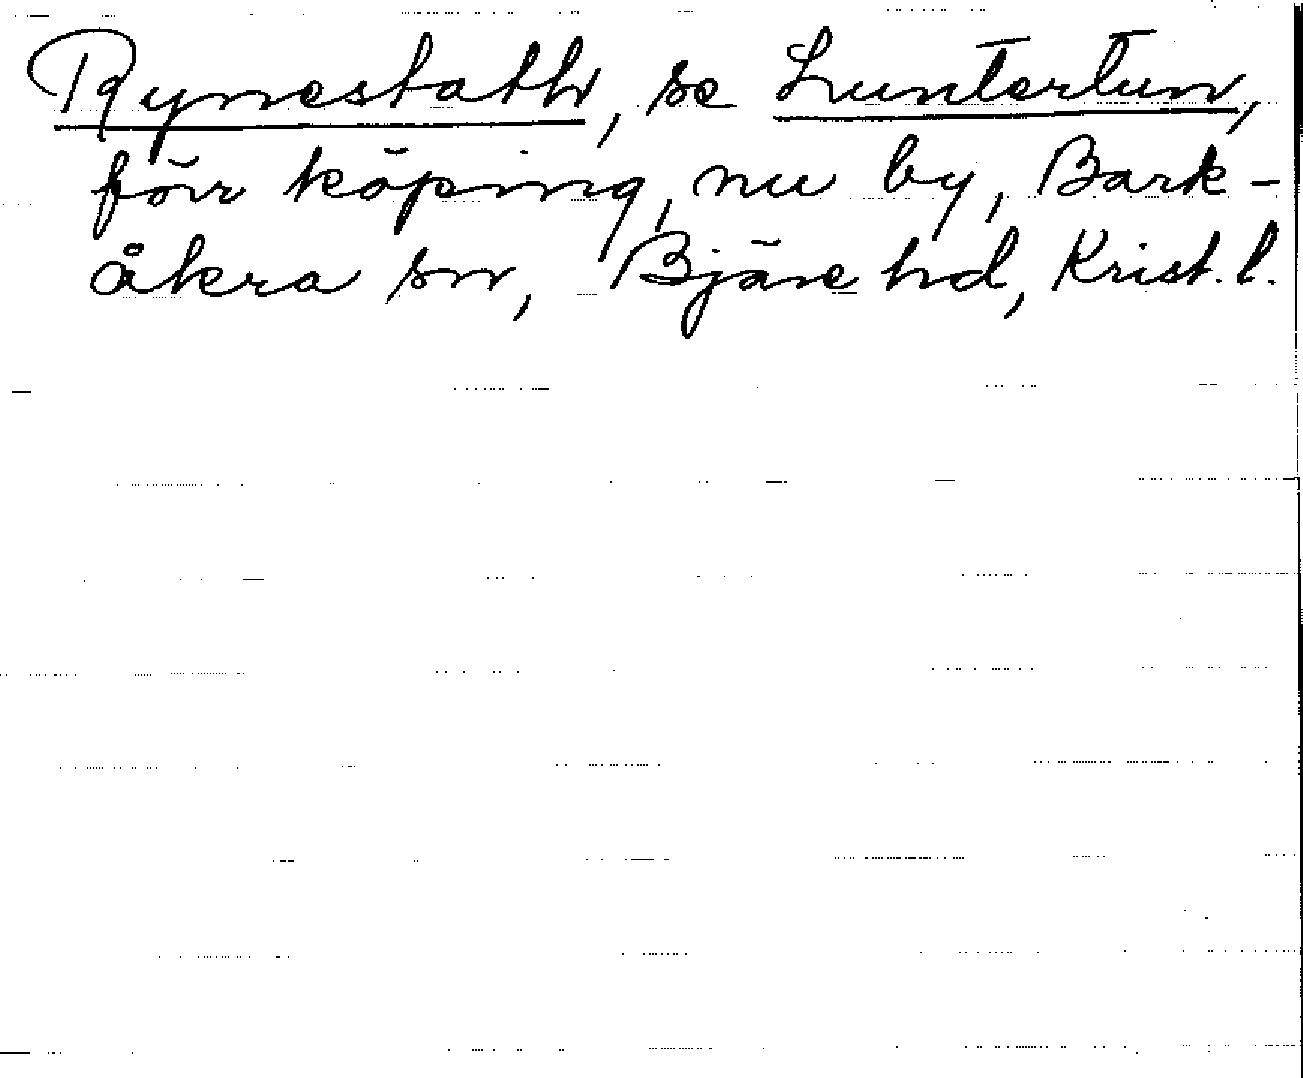 Rynestath, se Luntertun,
förr köping, nu by, Bark-
åkra sn, Bjäre hd, Krist. l.